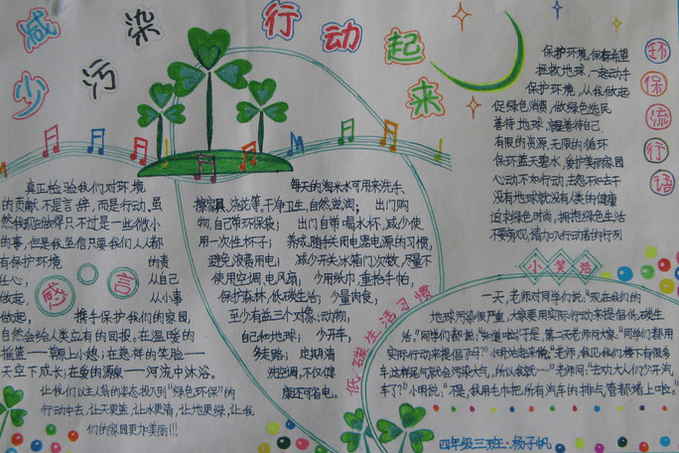 减少污染
行动起来
真正检验我们对环境
的贡献不是言辞,而是行动,虽
然我现在做得只不过是一些微小
的事,但是我坚信只要我们人人都
有保护环境的责
任心,从自己
做起,从小事
做起,携手保护我们的家园,
自然会给人类应有的回报。在温暖的
摇篮——草原上小憩;在慈祥的笑脸——
天空下成长;在爱的源泉——河流中沐浴。
让我们以主人翁的姿态投入到“绿色环保”的
行动中去,让天更蓝,让水更清,让地更绿,让我
们的家园更加美丽!!!
感言
每天的淘米水可用来洗手、
擦家具、浇花等。干净卫生,自然滋润;出门购
物,自己带环保袋;出门自带喝水杯,减少使
用一次性杯子;养成随手关用电器电源的习惯,
避免浪费用电;减少开关冰箱门次数,尽量不
使用空调、电风扇;少用纸巾,重拾手帕,
保护森林,低碳生活;少量肉食,
至少有益三个对象:动物,
自己和地球;少开车,
多走路;定期清
洗空调,不仅健
康还可省电。
低碳生活习惯
环保流行语
保护环境,保存希望
拯救地球,一起动手
保护环境,从我做起
促绿色消费,做绿色选民
善待地球,善待自己
有限的资源,无限的循环
保环蓝天碧水,爱护美丽家园
心动不如行动,去怨不如去干
没有地球就没有人类的健康
追求绿色时尚,拥抱绿色生活
不要旁观,请加入行动者的行列
小笑话
一天,老师对同学们说:“现在我们的
地球污染很严重,大家要用实际行动来提倡低碳生
活。”同学们都说:“知道啦!”于是,第二天老师问大家:“同学们都用
实际行动来提倡了吗?”小明站起来说:“老师,我见我们楼下有很多
车,这样尾气就会污染大气,所以我就……”老师问:“主动大人们少开汽
车了?”小明说:“不是,我用毛巾把所有汽车的排气管都堵上啦。”
四年级三班·杨子帆